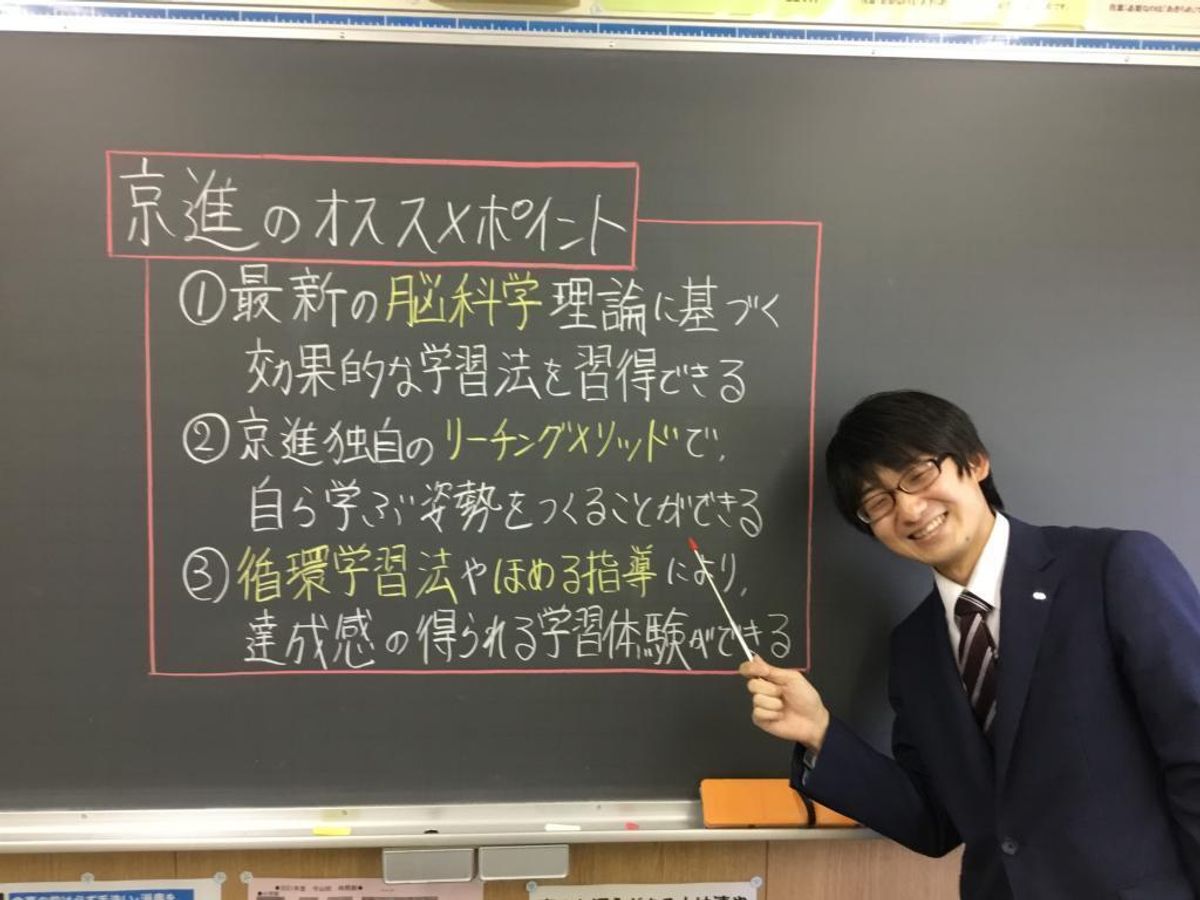 京進のオススメポイント
①最新の脳科学理論に基づく
効果的な学習法を習得できる
②京進独自のリーチングメソッドで、
自ら学ぶ姿勢をつくることができる
③循環学習法やほめる指導により、
達成感の得られる学習体験ができる